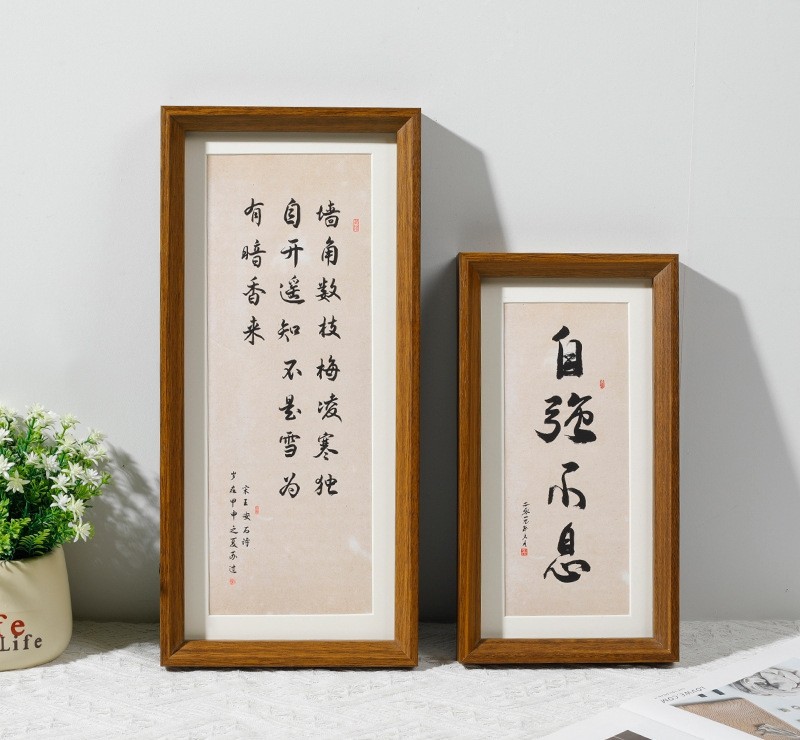 墙角数枝梅凌寒独
自开遥知不是雪为
有暗香来
宋王安石诗
岁在甲申之夏苏过
自强不息
fe
Life